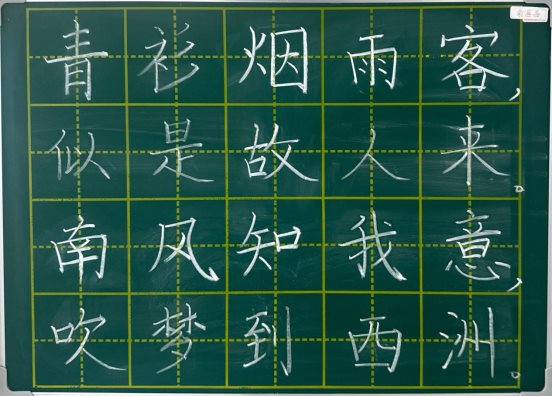 青衫烟雨客,
似是故人来。
南风知我意,
吹梦到西洲。